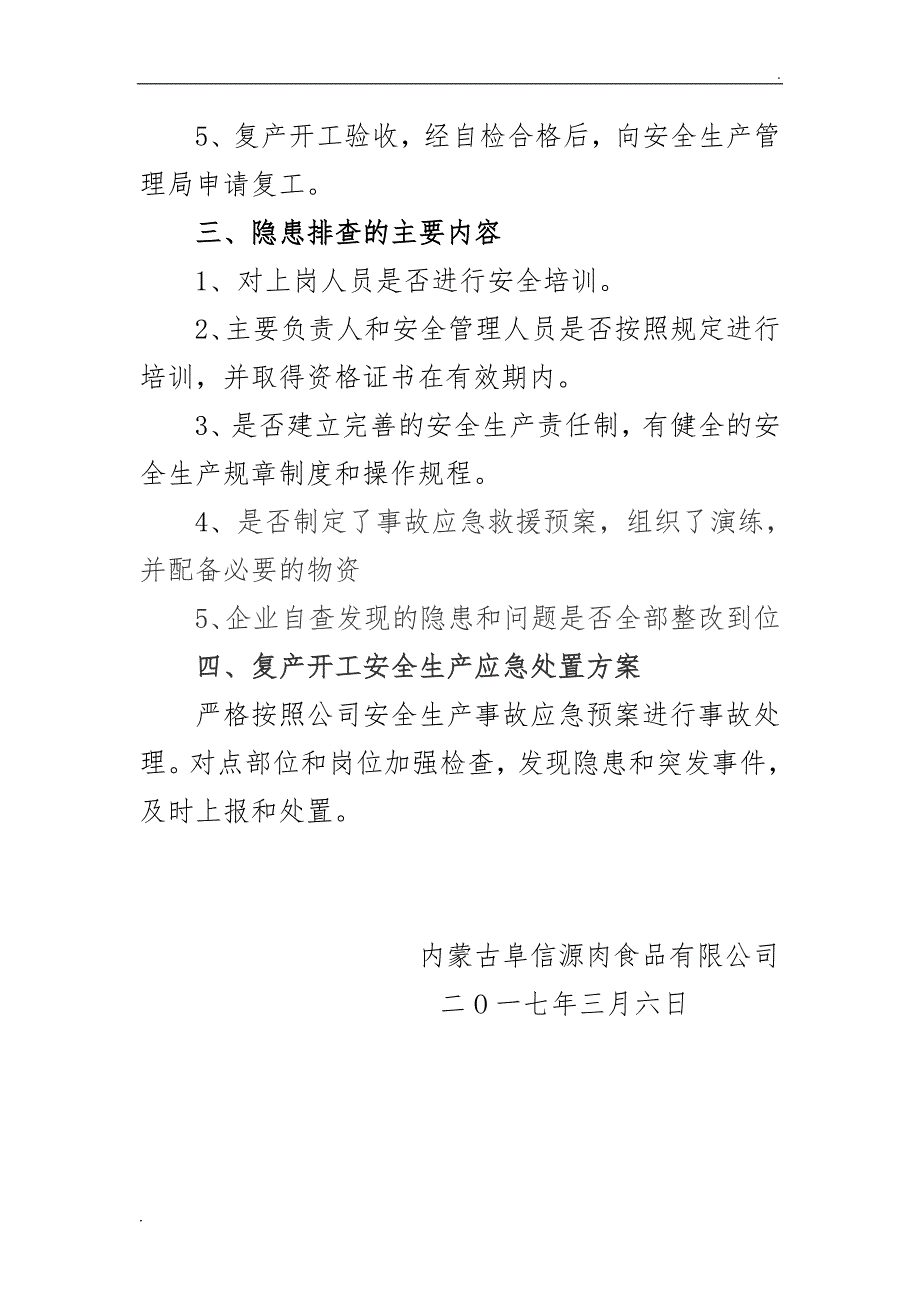 5、复产开工验收，经自检合格后，向安全生产管
理局申请复工。
三、隐患排查的主要内容
1、对上岗人员是否进行安全培训。
2、主要负责人和安全管理人员是否按照规定进行
培训，并取得资格证书在有效期内。
3、是否建立完善的安全生产责任制，有健全的安
全生产规章制度和操作规程。
4、是否制定了事故应急救援预案，组织了演练，
并配备必要的物资
5、企业自查发现的隐患和问题是否全部整改到位
四、复产开工安全生产应急处置方案
严格按照公司安全生产事故应急预案进行事故处
理。对点部位和岗位加强检查，发现隐患和突发事件，
及时上报和处置。
内蒙古阜信源肉食品有限公司
二O一七年三月六日